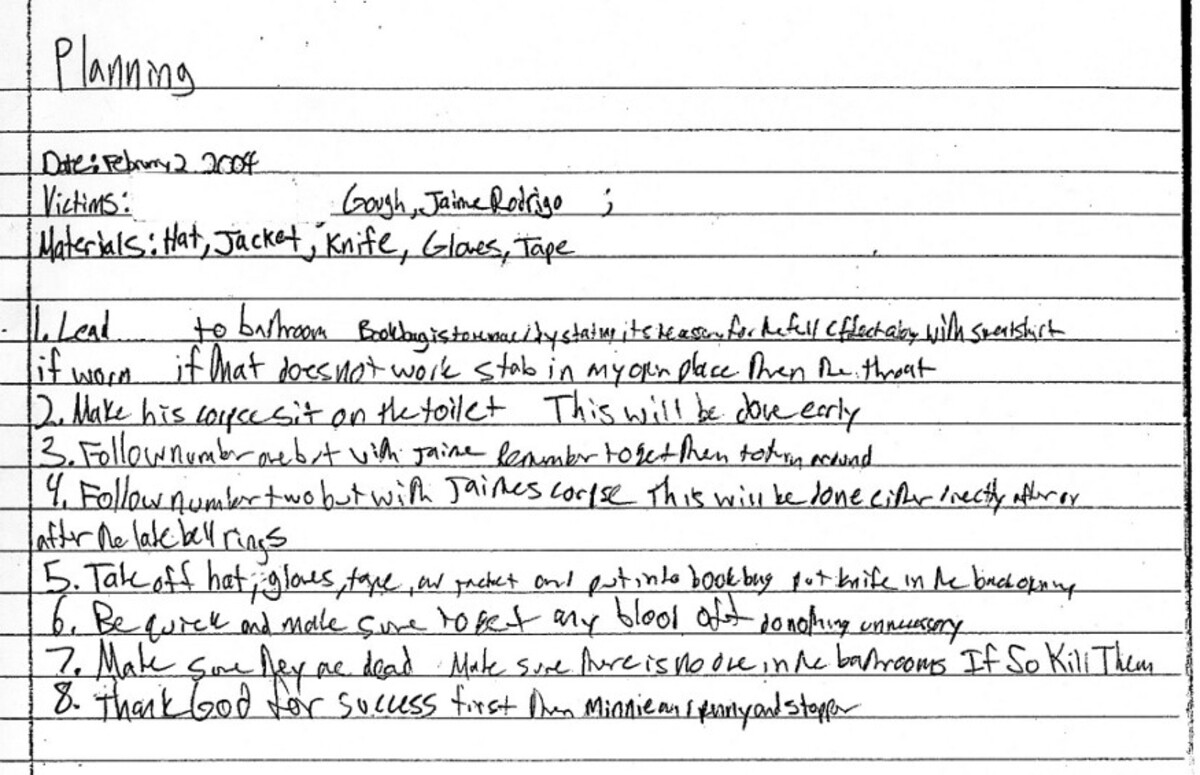 Planning
Date: February 2 2004
Victims: Gough, Jaime Rodrigo ;
Materials: Hat, Jacket, Knife, Gloves, Tape
1. Lead to bathroom Bookbag is to stating its necessary for the full effect along with sweatshirt
if worn if that does not work stab in my own place then the throat
2. Make his corpse sit on the toilet This will be done early
3. Follow number one but with Jaime Remember to get them to turn around
4. Follow number two but with Jaimes corpse This will be done either directly after or
after the late bell rings
5. Take off hat, gloves, tape, and jacket and put into bookbag put knife in the back
6. Be quick and make sure to get any blood off do nothing unnecessary
7. Make sure they are dead Make sure there is no one in the bathrooms If So Kill Them
8. Thank God for success first then Minnie and